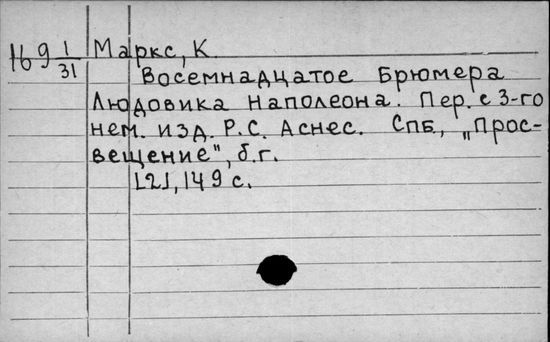 169 1/31 Маркс, К.
Восемнадцатое Брюмера
Людовика Наполеона. Пер. с 3-го
нем. изд. Р.С. Аснес. Спб., „Прос-
вещение", б.г.
[2], 149 с.